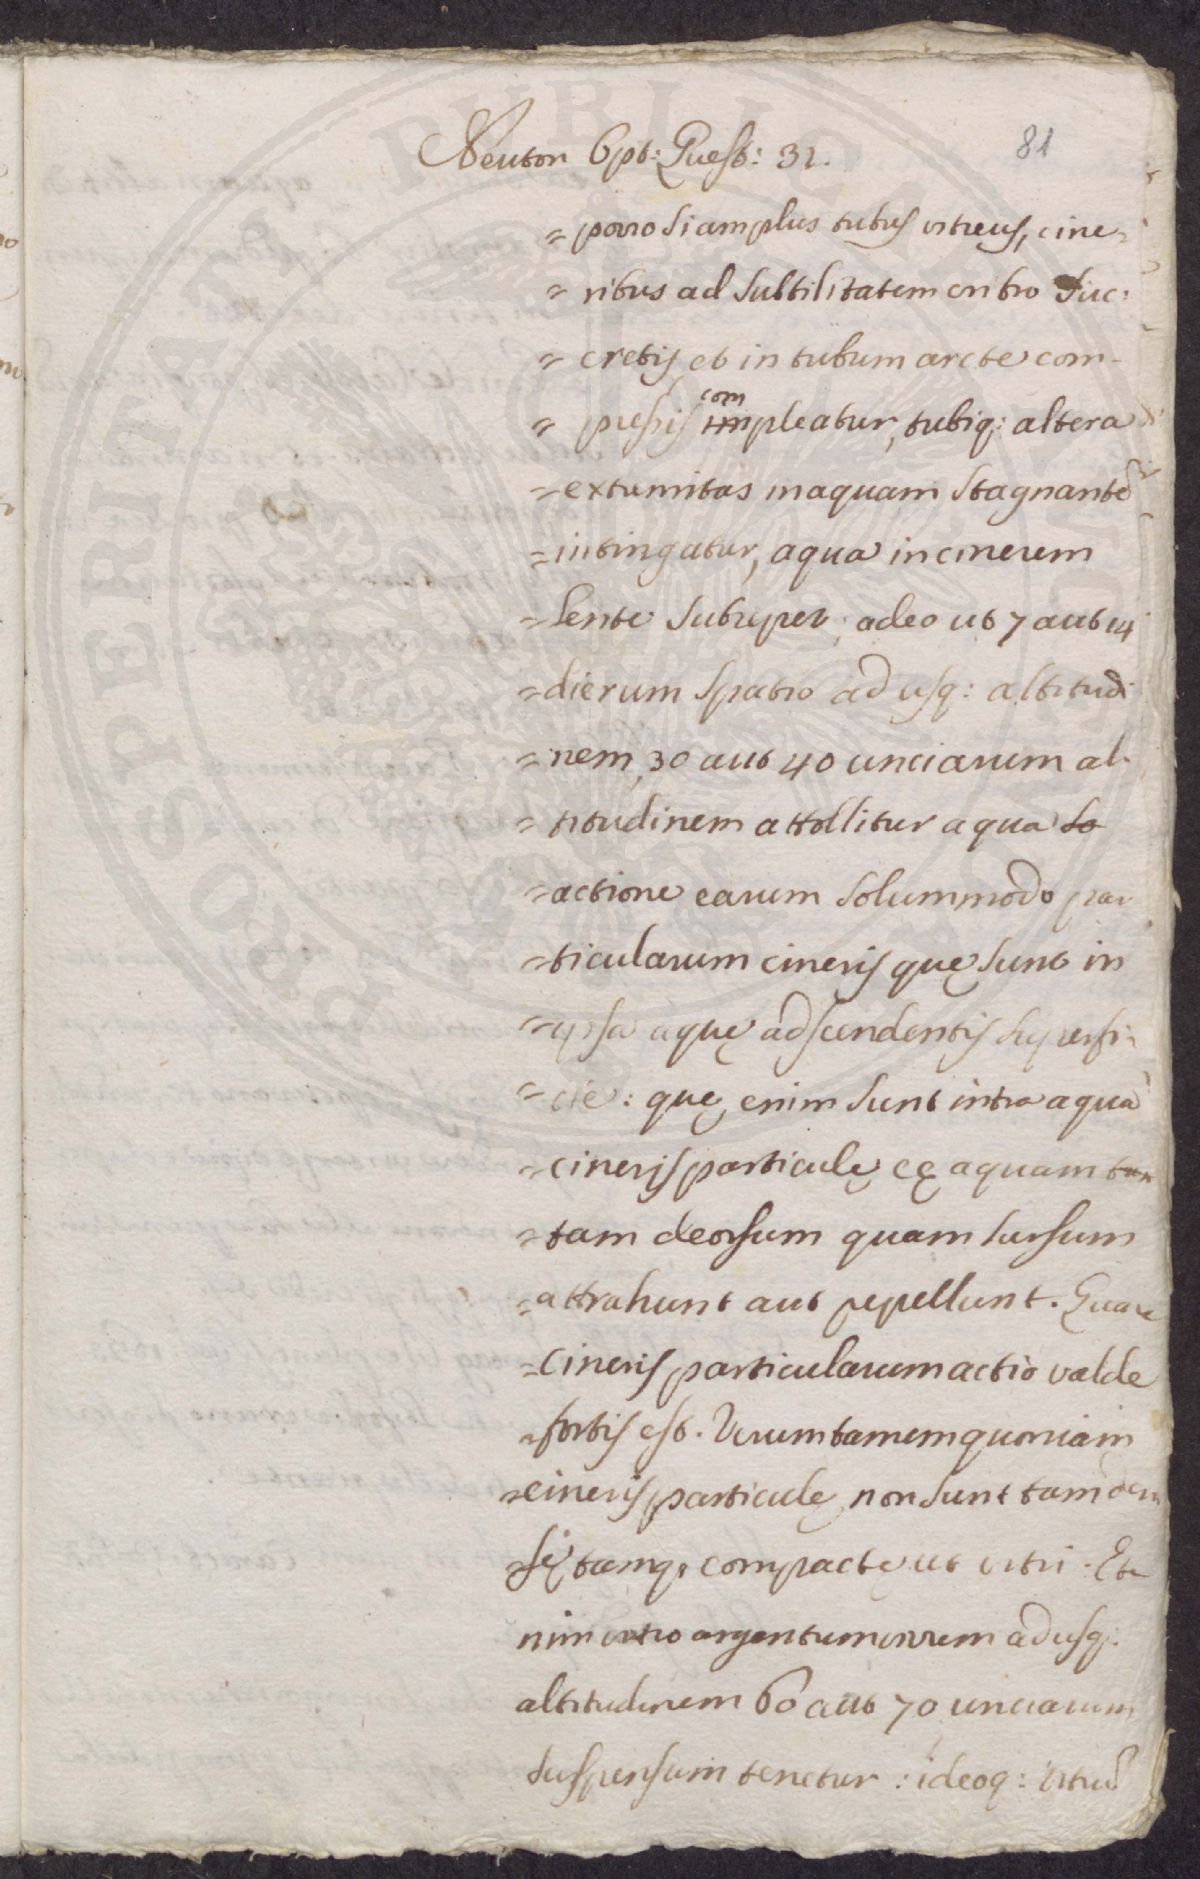 Neuton Opt: Quest: 31.
81
= porro si amplus tubus vitreus, cine,
= ribus ad subtilitatem cribro suc:
= cretis et in tubum arcte com-
= pressis com impleatur, tubiq: altera
= extumitas in aquam stagnantē
= intingatur, aqua in cinerem
= lente subrepet, adeo ut 7 aut 14
= dierum spatio ad usq: altitudi
= nem, 30 aut 40 unciarum al-
= titudinem attollitur aqua so
= actione earum solummodo par
= ticularum cineris quę sunt in
= ipsa aquę adscendentis superfi-
= cie: quę enim sunt intra aquā
= cineris particulę eę aquam tan
= tam deorsum quam sursum
= attrahunt aut repellunt. Quare
= cineris particularum actio valde
= fortis est. Verumtamem quoniam
= cineris particulę non sunt tam den
= sę tamq: compactę ut vitri. Ete
nim vitro argentum vivvem ad usq:
altitudinem 60 aut 70 unciarum
suspensum tenetur: ideoq: vitrū